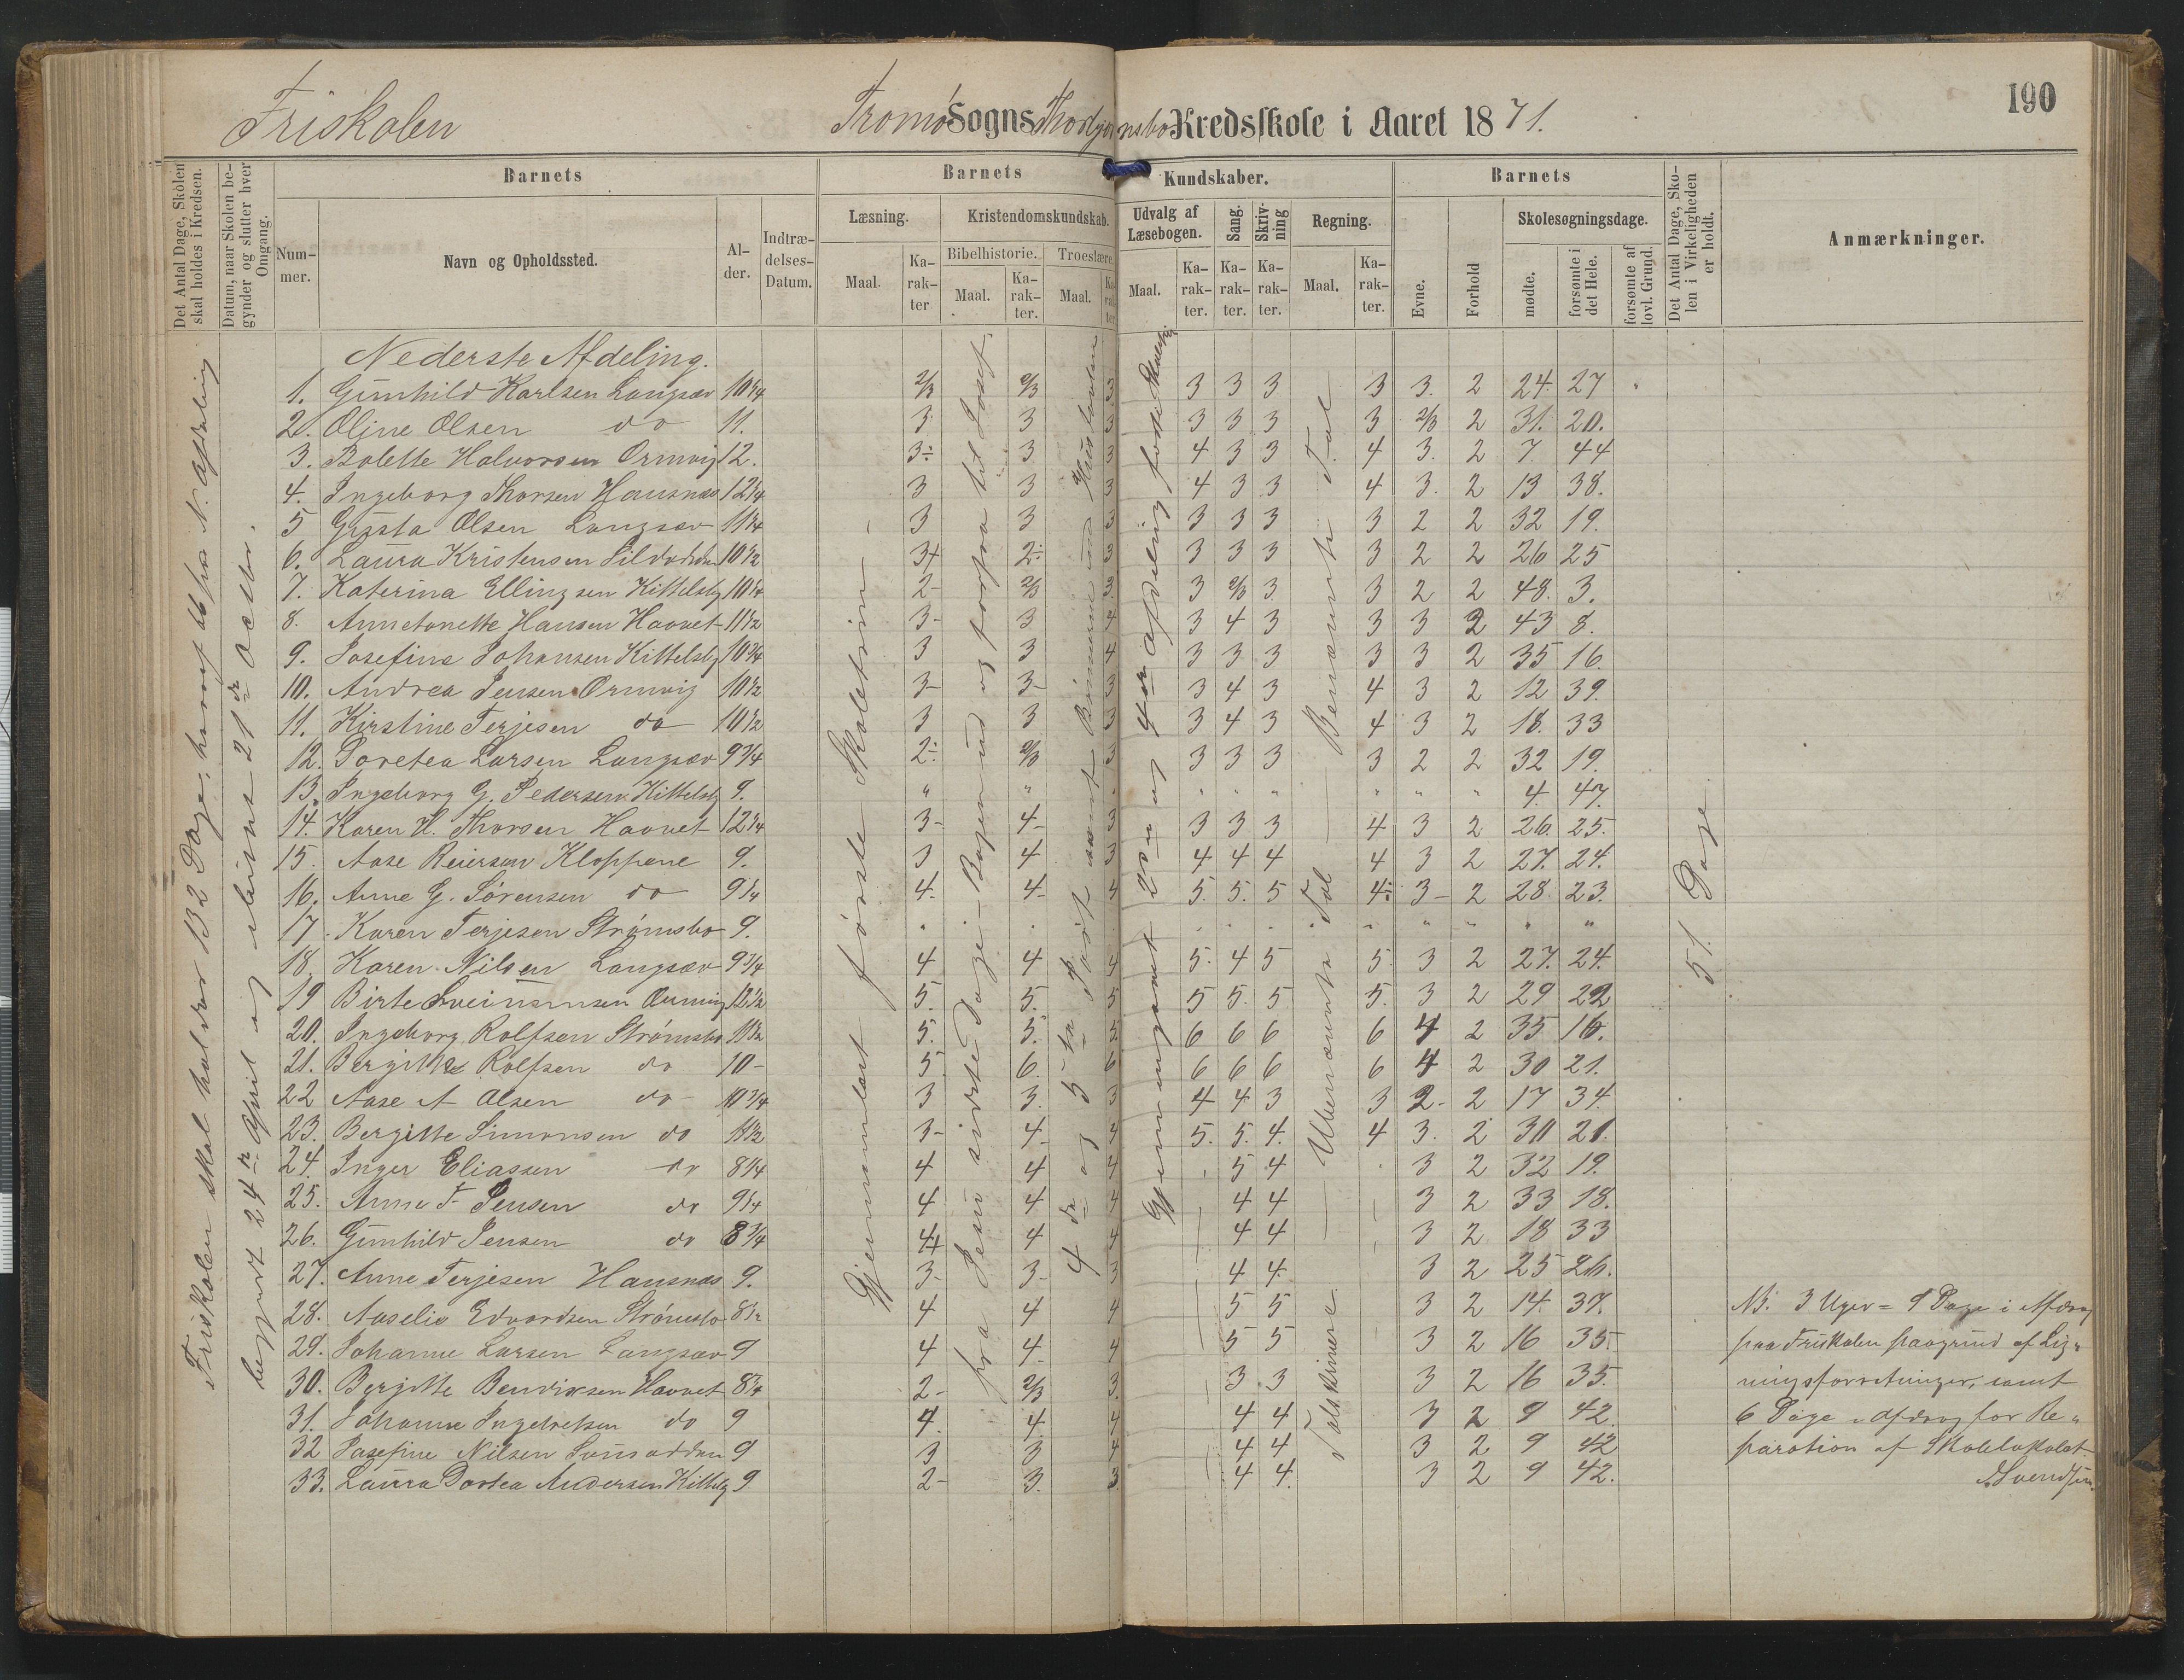 190
Friskolen Tromø Sogns Thorbjørnsbo Kredsskole i Aaret 1871.
Det Antal Dage, Skolen skal holdes i Kredsen.
Datum, naar Skolen begynder og slutter hver Omgang.
Barnets Barnets Kundskaber. Barnets
Det Antal Dage, Skolen i Virkeligheden er holdt.
Anmærkninger.
Nummer. Navn og Opholdssted. Alder. Indtrædelses-Datum.
Læsning. Kristendomskundskab. Udvalg af Læsebogen. Sang. Skrivning Regning. Evne. Forhold Skolesøgningsdage.
Bibelhistorie. Troeslære.
Maal. Karakter Maal. Karakter. Maal. Karakter Maal. Karakter. Karakter. Karakter. Maal. Karakter. mødte. forsømte i det Hele. forsømte af lovl. Grund.
Friskolen skal holdes 132 Dage, heraf 66 paa N. Afdeling
begyndt 24de April og sluttet 21de Octbr.
Gjennemlæst første Skoletrin
fra Jesu sidste Dage Bogen ud og forfra til Josef.
4de og 5te Part samt
Gjennemgaaet 2den og 4de Afdeling
Ubenævnte Tal Benævnte Tal
51 Dage
Nederste Afdeling.
1. Gunhild Karlsen Langsæv 10 1/4 2/3 2/3 3 3 3 3 3 3. 2 24. 27
2. Oline Olsen do 11. 3 3 3 3 3 3 3 2/3 2 31. 20.
3. Bolette Halvorsen Ormvig 12. 3÷ 3 3 4 3 3 4 3. 2 7 44
4. Ingeborg Thorsen Hausnæs 12 1/4 3 3 3 4 3 3 4 3. 2 13 38.
5 Gusta Olsen Langsæv 11 1/4 3 3 3 3 3 3 3 2 2 32 19.
6. Laura Kristensen 10 1/2 3+ 2÷ 3 3 3 3 3 2 2 26 25
7. Katerina Ellingsen Kittelsby 10 1/4 2- 2/3 3 3 2/3 3 3 2 2 48. 3.
8. Annetonette Hansen Haavet 11 1/2 3- 3 4 3 4 3 3 3 2 43 8.
9. Josefine Johansen Kittelsby 10 3/4 3 3 4 3 3 3 3 3 2 35 16.
10. Andrea Jensen Ormvig 10 1/2 3- 3- 3 3 4 3 4 3 2 12 39.
11. Kirstine Terjesen do 10 1/2 3 3 3 3 4 3 4 3 2 18. 33
12. Doretea Larsen Langsæv 9 3/4 2÷ 2/3 3 3 3 3 3 2 2 32 19.
13. Ingeborg G. Pedersen Kittelsby 9. " " " " " " " " " 4. 47.
14. Karen H. Thorsen Haavet 12 1/4 3- 4- 3 3 3 3 4 3 2 26. 25.
15. Aase Reiersen Kloppene 9. 3 4 3 4 4 4 4 3 2 27. 24.
16. Anne G. Sørensen do 9 1/4 4- 4- 4 5. 5. 5 4÷ 3- 2 28 23.
17. Karen Terjesen Strømsbo 9. " " " " " " " " " " "
18. Karen Nilsen Langsæv 9 3/4 4 4 4 5. 4 5 5 3 2 27. 24.
19 Birte Sveinunsen Ormvig 12 1/2 5. 5. 5 5 5. 5 5. 3 2 29 22
20. Ingeborg Rolfsen Strømsbo 11 1/2 5. 5. 5 6 6 6 6 4 2 35 16.
21. Bergitte Rolfsen do 10- 5 6. 6 6 6 6 6 4 2 30 21.
22 Aase A Olsen do 10 3/4 3 3. 3 4 4 3 3 2- 2 17 34.
23. Bergitte Simonsen do 11 1/2 3- 4- 4 5. 5. 4. 4 3. 2 30 21.
24. Inger Eliassen do 8 1/4 4 4 4 5 4 3 2 32 19.
25. Anne F Jensen do 9 1/4 4 4 4 4 4 3 2 33 18.
26. Gunhild Jensen do 8 3/4 4+ 4 4 4 4 3 2 18 33
27. Anne Terjesen Hausnæs 9. 3- 3- 3 4 4. 3 2 25 26.
28. Aaselie Edvardsen Strømsbo 8 1/2 4 4 4 5 5 3 2 14. 37.
29. Johanne Larsen Langsæv 9 4 4. 4 5 5 3 2 16 35.
30. Bergitte Bendixsen Haavet 8 3/4 2- 2/3 3. 3 3 3 2 16 35.
31. Johanne Ingebretsen do 9 4. 4. 4 4 4 3 2 9 42.
32 Josefine Nilsen 9 3 3 4 4 4 3 2 9 42
33. Laura Dortea Andersen Kittelsby 9 2- 3. 3 4 4. 3 2 9 42.
NB. 3 Uger = 9 Dage i Afdrag
paa Friskolen paagrund af Lig-
ningsforretninger, samt
6 Dage i Afdrag for Re-
paration af Skolelokalet
Svendsen